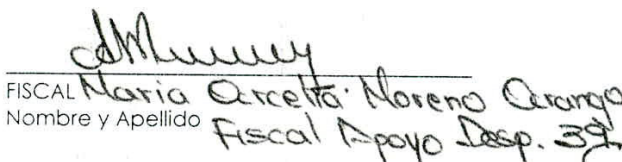 FISCAL Maria Arcelia Moreno Arango
Nombre y Apellido Fiscal Apoyo Desp. 39